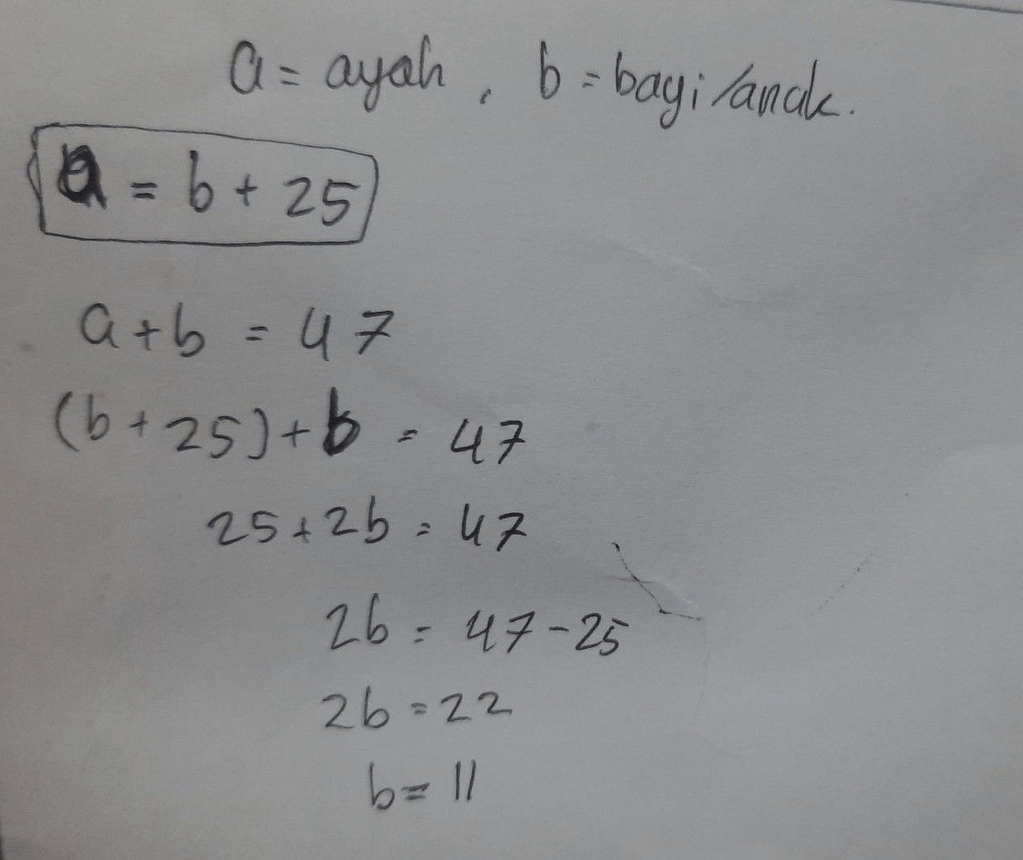 a = ayah , b = bayi/anak.
a = b + 25
a + b = 47
(b + 25) + b = 47
25 + 2b = 47
2b = 47 - 25
2b = 22
b = 11